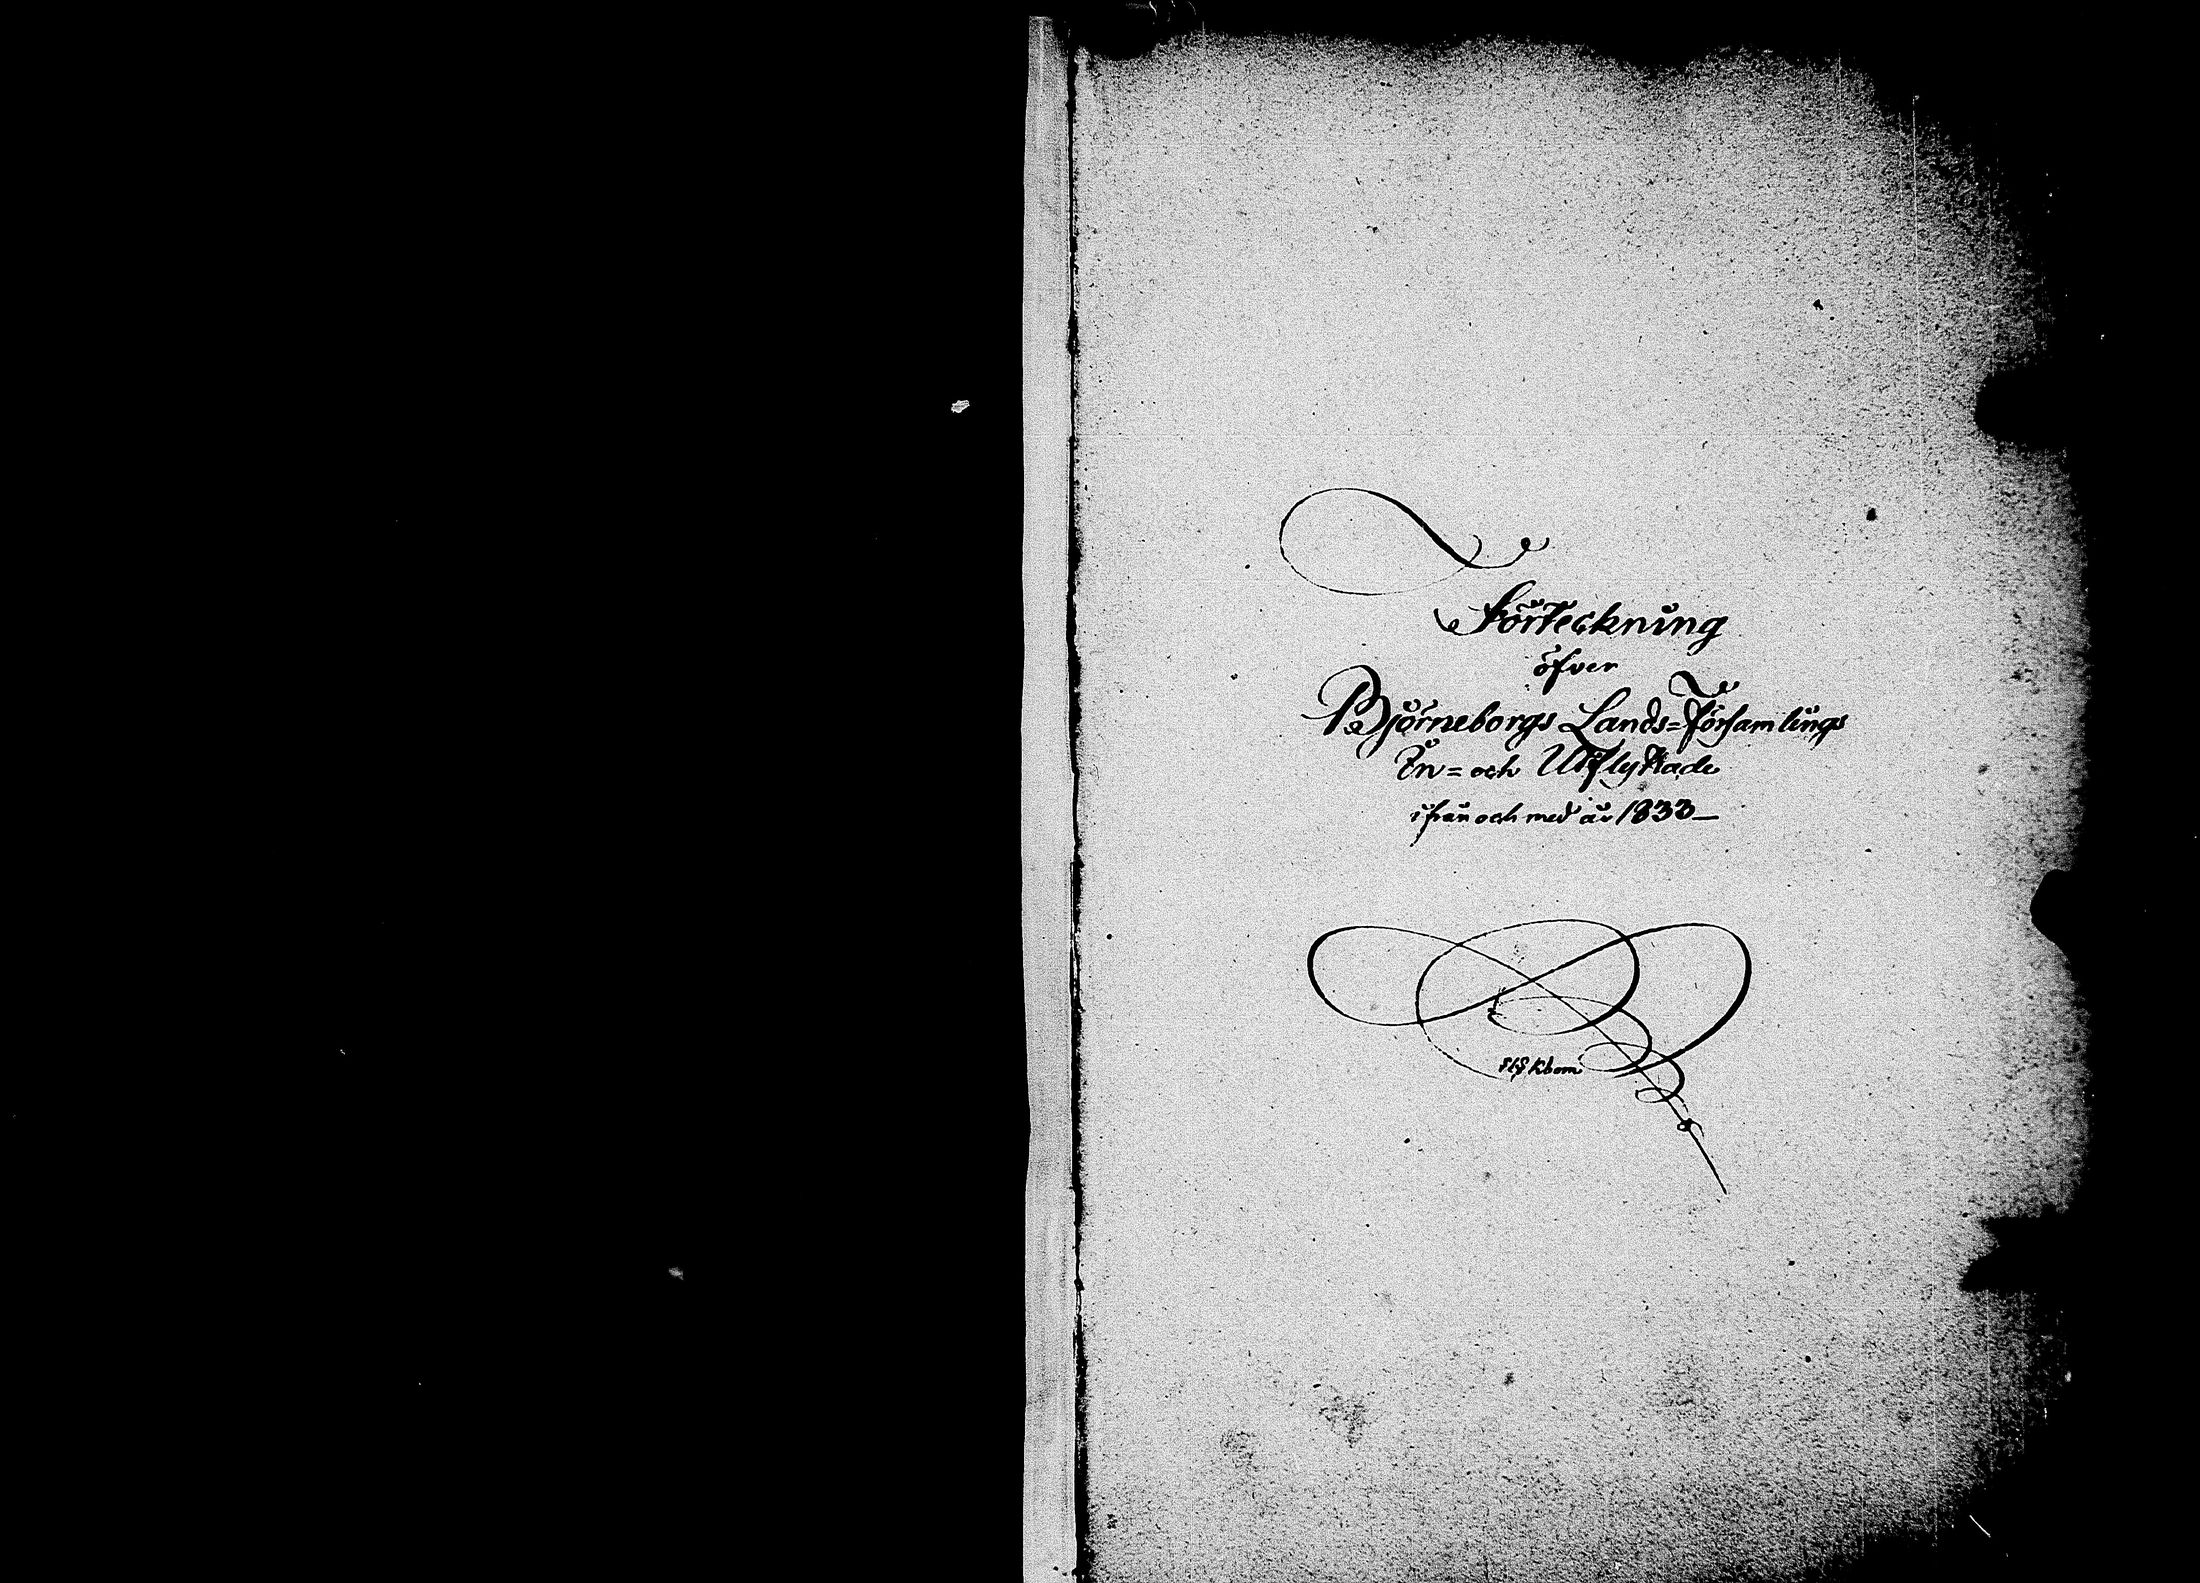 Förteckning
öfver
Björneborgs Lands=Församlings
In= och Utflyttade
ifrån och med år 1833_